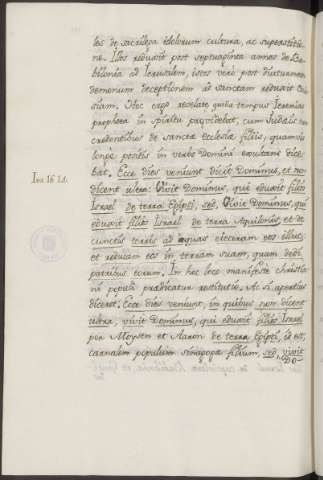 les de sacrilega idolorum cultura, ac superstitio-
ne. Illos reduxit post septuaginta annos de Ba-
bilonia ad Ierusalem, istos verò post diuturnam
demonum deceptionem ad sanctam reduxit Eccle-
siam. Hoc ergo revelate gratia tempus Ieremias
propheta in spiritu providebat, cum Iudaeis non
credentibus de sanctae Ecclesiae filiis, quamvis
longe positis in verbo Domini dice-
bat, Ecce dies veniunt dicit Dominus, et non
Ier. 16. 14.
dicent ultra: Vivit Dominus, qui eduxit filios
Israel de terra Egipti, sed, Vivit Dominus, qui
eduxit filios Israel de terra Aquilonis, et de
cunctis terris ad quas eieceram eos illuc;
et reducam eos in terram suam, quam dedi
patribus eorum. In hoc loco manifeste christia-
ni populi predicatur restitutio. Ac si apertius
diceret. Ecce dies veniunt, in quibus non dicent
ultra, vivit Dominus, qui eduxit filios Israel
per Moysen et Aaron de terra Egipti, id est,
carnalem populum sinagoga filium, sed, vivit
Do-